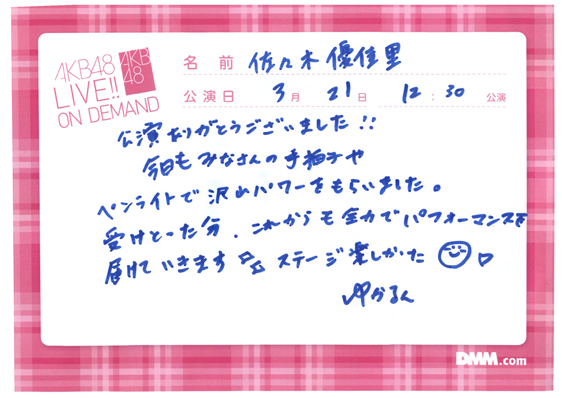 AKB48
LIVE!!
ON DEMAND
AKB
48
名前 佐々木優佳里
公演日 3月 21日 12:30 公演
公演ありがとうございました!!
今日もみなさんの手拍子や
ペンライトで沢山パワーをもらいました。
受けとった分、これからも全力でパフォーマンスを
届けていきます ステージ楽しかった
ゆかるん
DMM.com